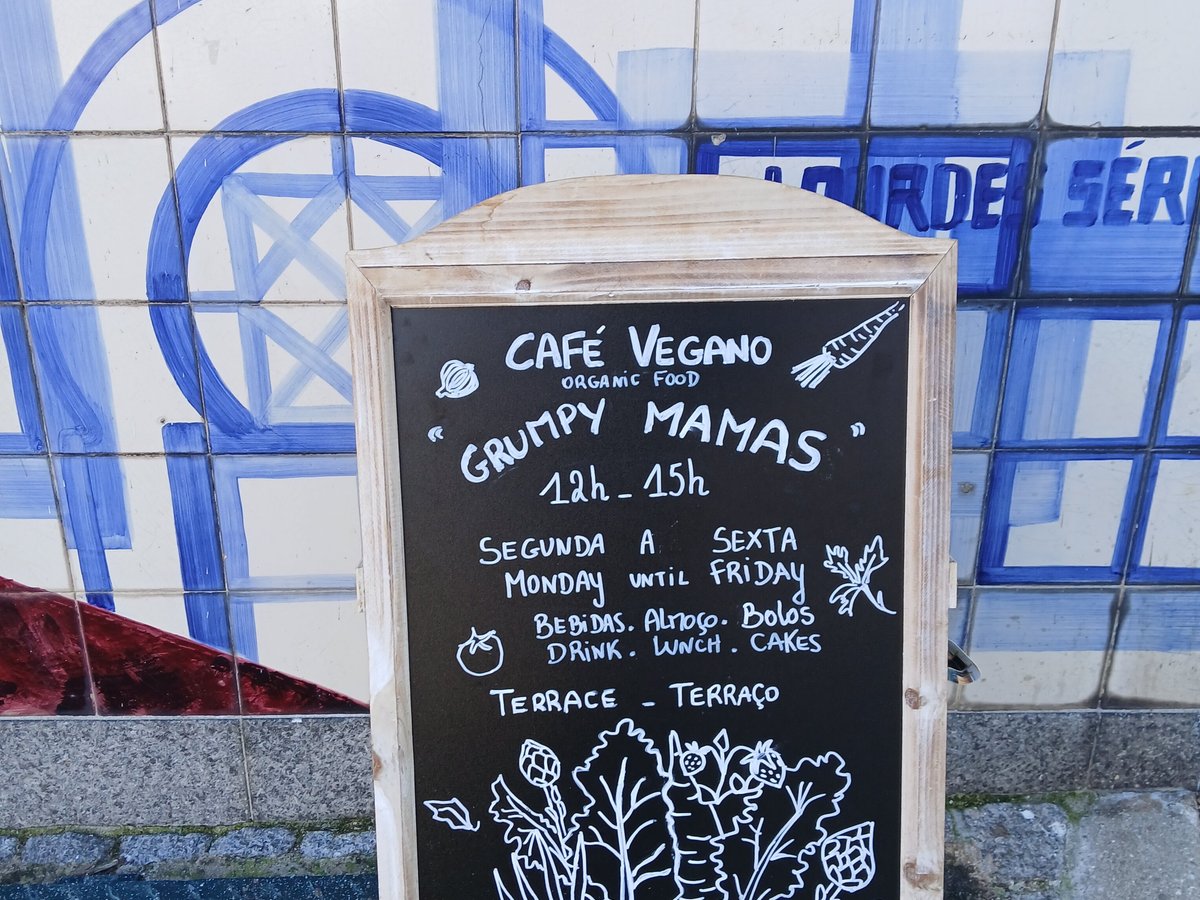 LOURDES SÉR
CAFÉ VEGANO
ORGANIC FOOD
"GRUMPY MAMAS"
12h - 15h
SEGUNDA A SEXTA
MONDAY UNTIL FRIDAY
BEBIDAS. ALMOÇO. BOLOS
DRINK. LUNCH. CAKES
TERRACE - TERRAÇO